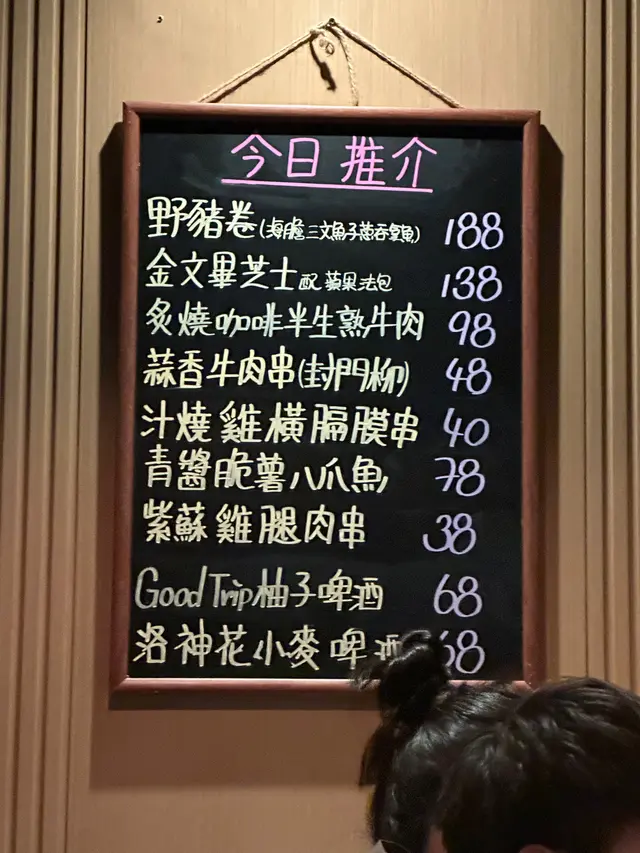 今日推介
野豬卷(海膽三文魚子蔥吞拿魚) 188
金文畢芝士配蘋果法包 138
炙燒咖啡半生熟牛肉 98
蒜香牛肉串(封門柳) 48
汁燒雞橫膈膜串 40
青醬脆薯八爪魚 78
紫蘇雞腿肉串 38
Good Trip柚子啤酒 68
洛神花小麥啤酒 68